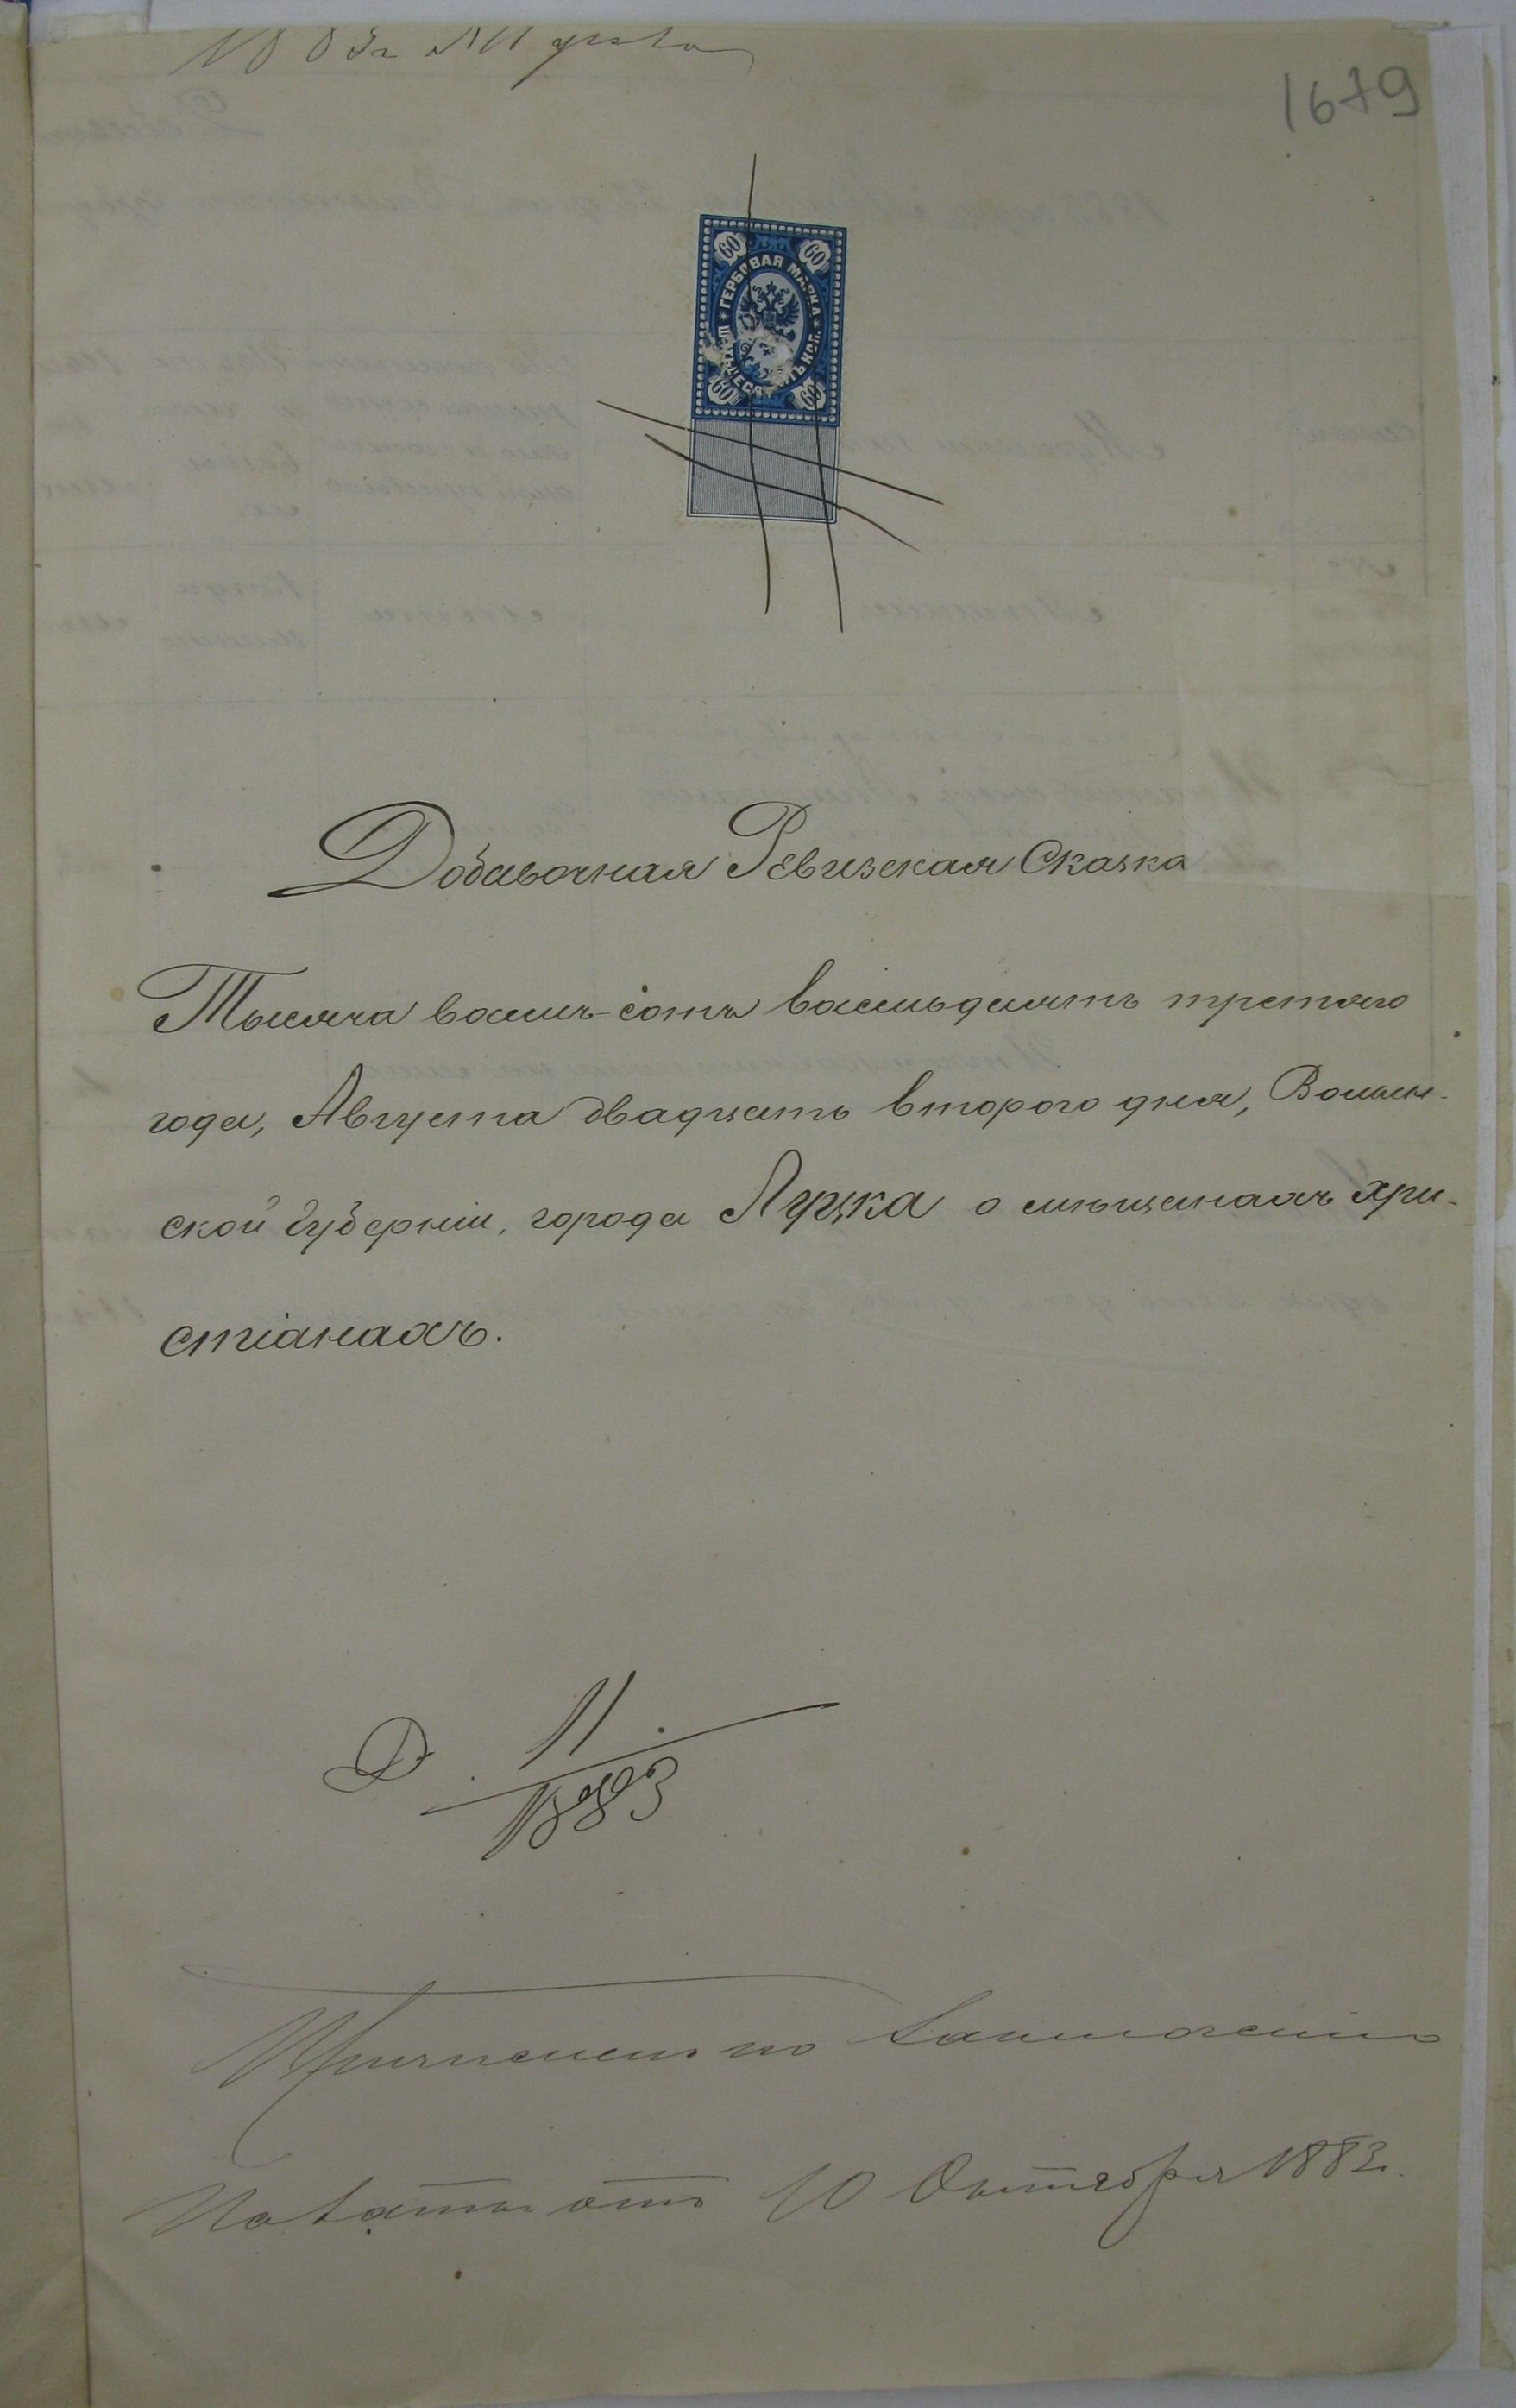 1679
60 60
ГЕРБОВАЯ МАРКА
КОП.
60 60
Добавочная Ревизская Сказка
Тысяча восемь-сотъ восемьдесятъ третяго
года, Августа двадцать второго дня, Волын-
ской губерніи, города Луцка о мѣщанахъ хри-
стіанахъ.
Д. 11.
1883
Причислены по
Палаты отъ 10 Октября 1883 г.